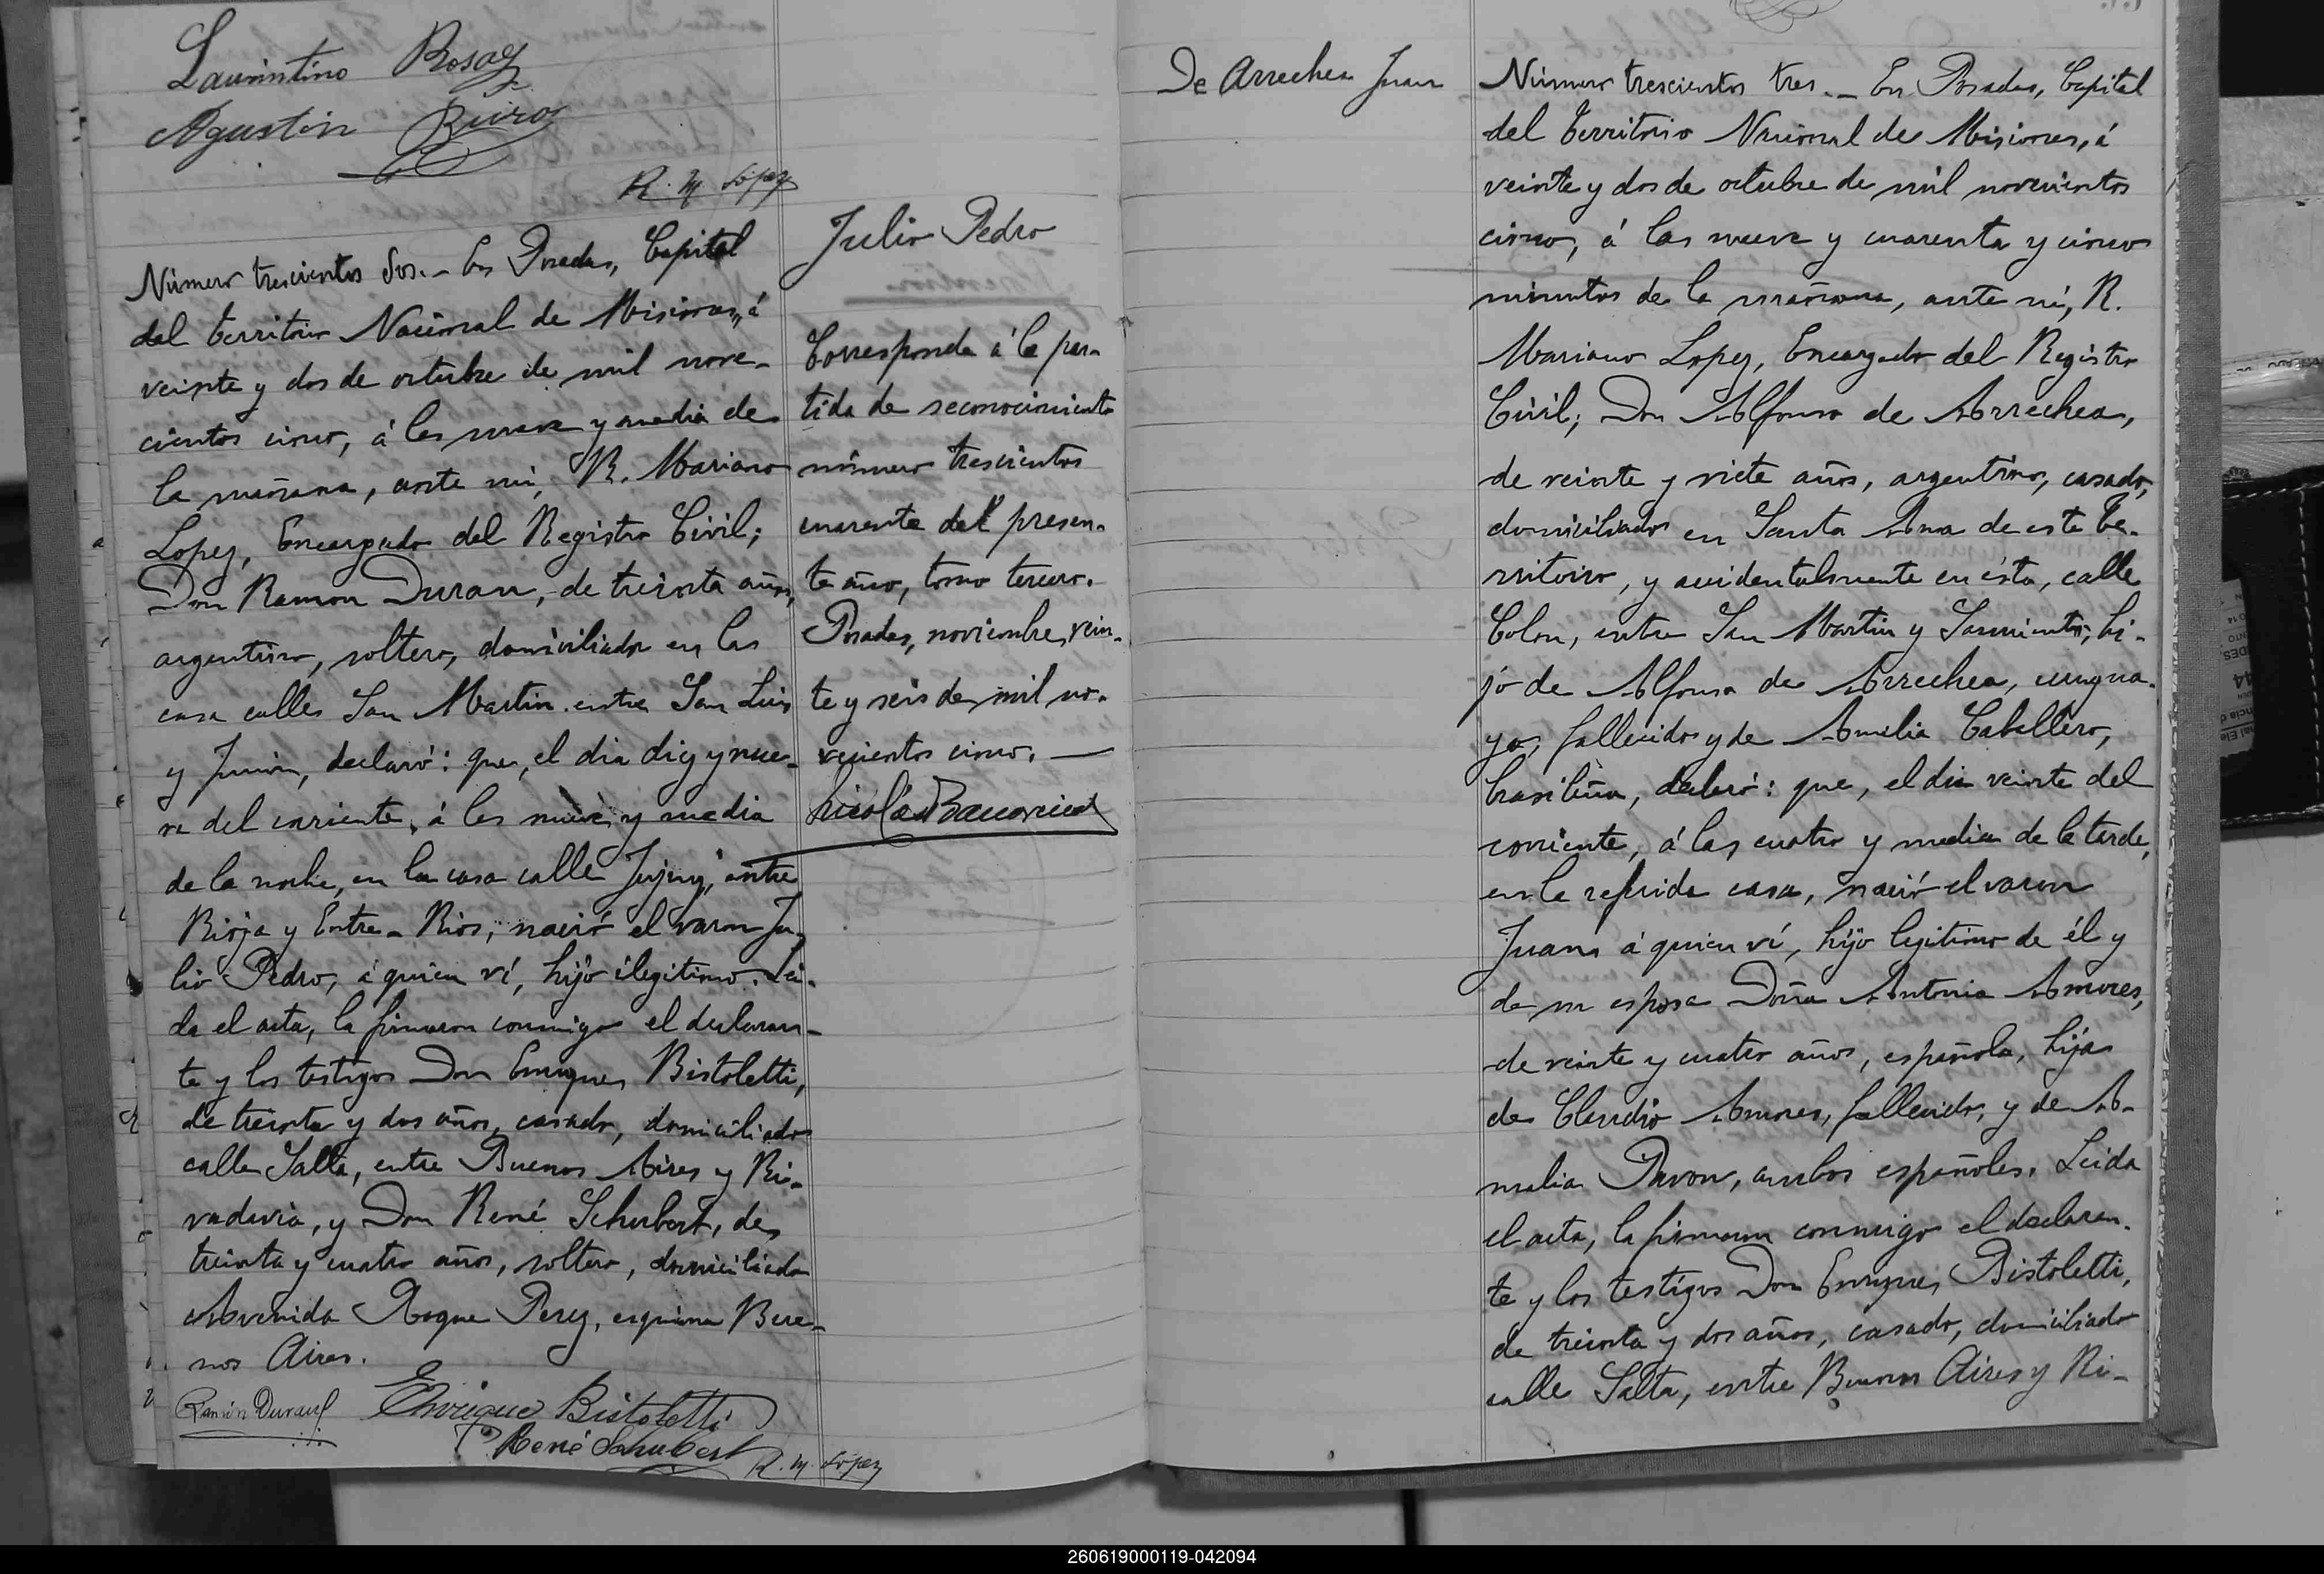 Laurintino Rosas
Agustin
R. M. Lopez
Número trescientos dos.- En Posadas, Capital
del Territorio Nacional de Misiones, á
veinte y dos de octubre de mil nove-
cientos cinco, á las nueve y media de
la mañana, ante mí, R. Mariano
Lopez, Encargado del Registro Civil;
Don Ramon Duran, de treinta años,
argentino, soltero, domiciliado en las
casa calles San Martin entre San Luis
y Junin, declaró: que, el dia diez y nue-
ve del coriente, á las nueve y media
de la noche, en la casa calle Jujuy, entre
Rioja y Entre-Rios, nació el varon Ju-
lio Pedro, á quien ví, hijo ilegitimo. Lei-
da el acta, la firmaron conmigo el declaran-
te y los testigos Don Enrique Bistoletti,
de treinta y dos años, casado, domiciliado
calle Salta, entre Buenos Aires y Ri-
vadavia, y Don René Schubert, de
treinta y cuatro años, soltero, domiciliado
Avenida Roque Perez, esquina Bue-
nos Aires.
Ramón Duran
Enrique Bistoletti
René Schubert
R. M. Lopez
Julio Pedro
Corresponde á la par-
tida de reconocimiento
número trescientos
cuarenta del presen-
te año, tomo tercero.
Posadas, noviembre, vein-
te y seis de mil no-
vecientos cinco. —
De Arrechea Juan
Número trescientos tres.- En Posadas, Capital
del Territorio Nacional de Misiones, á
veinte y dos de octubre de mil novecientos
cinco, á las nueve y cuarenta y cinco
minutos de la mañana, ante mí, R.
Mariano Lopez, Encargado del Registro
Civil; Don Alfonso de Arrechea,
de veinte y siete años, argentino, casado,
domiciliado en Santa Ana de este Te-
rritorio, y accidentalmente en ésta, calle
Colon, entre San Martin y Sarmiento, hi-
jo de Alfonso de Arrechea, urugua-
yo, fallecido y de Amelia Caballero,
brasileña, declaró: que, el dia veinte del
corriente, á las cuatro y media de la tarde,
en la referida casa, nació el varon
Juan á quien ví, hijo legitimo de él y
de su esposa Doña Antonia Amores,
de veinte y cuatro años, española, hija
de Claudio Amores, fallecido, y de A-
malia Pavon, ambos españoles. Leida
el acta, la firmaron conmigo el declaran-
te y los testigos Don Enrique Bistoletti,
de treinta y dos años, casado, domiciliado
calle Salta, entre Buenos Aires y Ri-
260619000119-042094